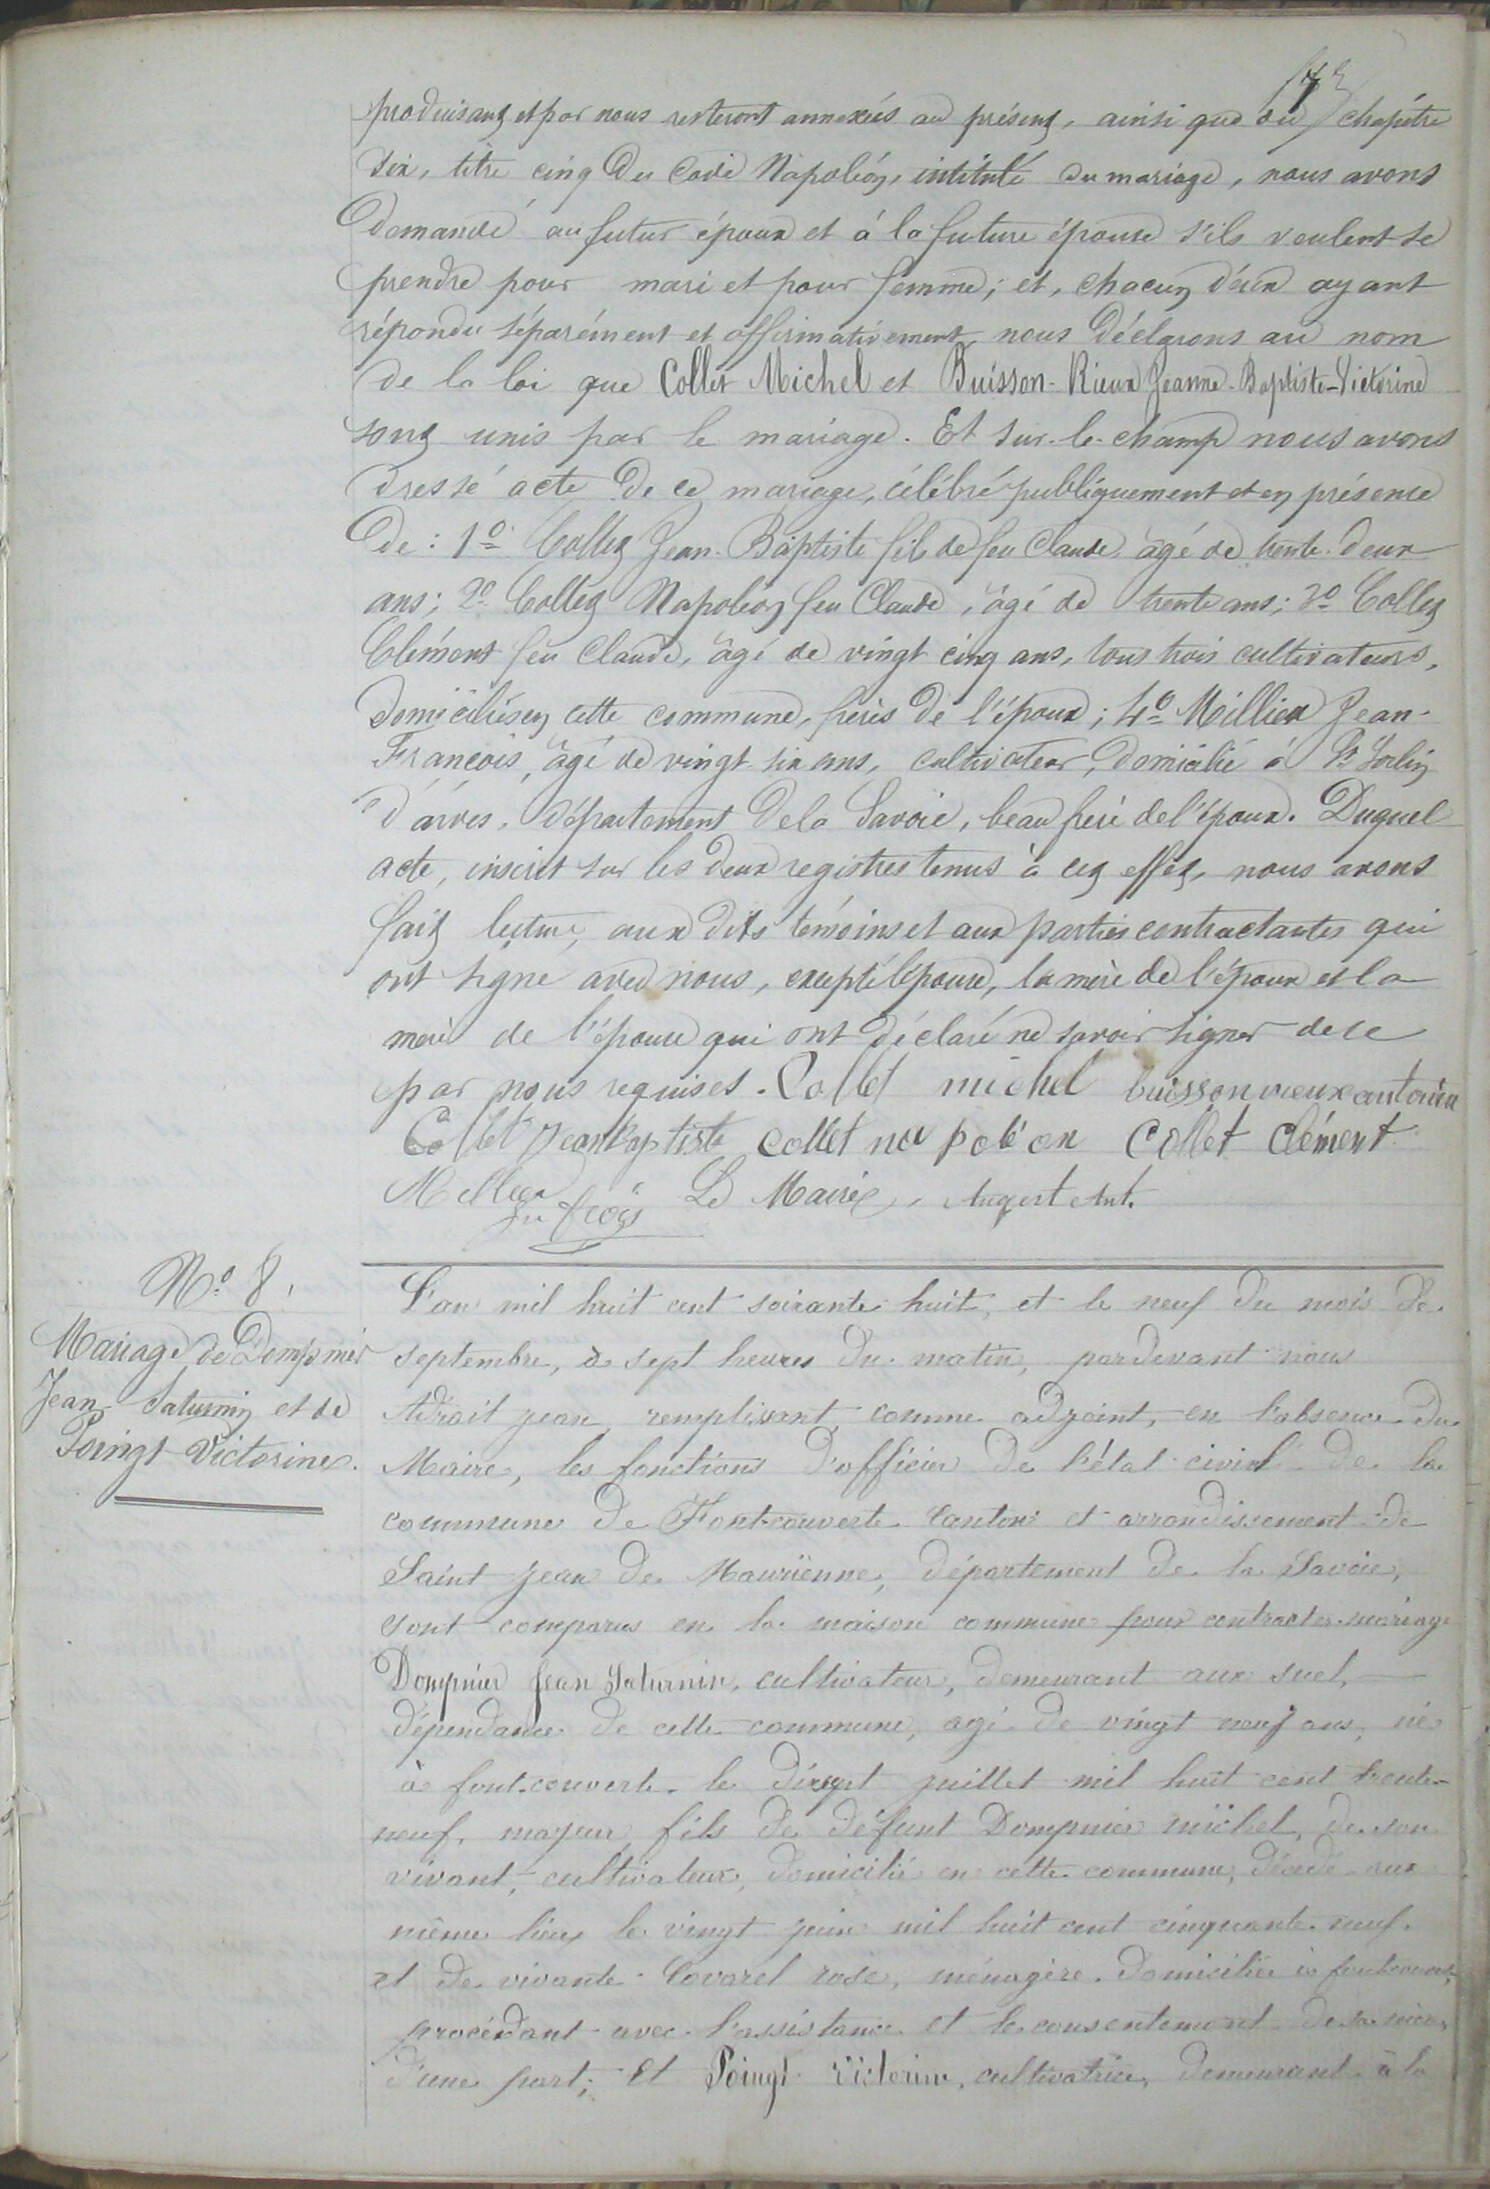 produisant et par nous resteront annexées au présent, ainsi que du chapitre
six, titre cinq du Code Napoléon, intitulé du mariage, nous avons
demandé au futur époux et à la future épouse s'ils veulent se
prendre pour mari et pour femme; et, chacun d'eux ayant
répondu séparément et affirmativement, nous déclarons au nom
de la loi que Collet Michel et Buisson-Rieux Jeanne-Baptiste-Victorine
sont unis par le mariage. Et sur-le-champ nous avons
dressé acte de ce mariage, célébré publiquement et en présence
de: 1º Collet Jean-Baptiste fils de feu Claude âgé de trente-deux
ans; 2º Collet Napoléon feu Claude, âgé de trente ans; 3º Collet
Clément feu Claude, âgé de vingt cinq ans, tous trois cultivateurs,
domiciliés en cette commune, frères de l'époux; 4º Millieu Jean-
François, âgé de vingt six ans, cultivateur, domicilié à St Sorlin
d'arves, département de la Savoie, beau frère de l'époux. Duquel
acte, inscrit sur les deux registres tenus à cet effet, nous avons
fait lecture, aux dits témoins et aux parties contractantes qui
ont signé avec nous, excepté l'épouse, la mère de l'époux et la
mère de l'épouse qui ont déclaré ne savoir signer de ce
par nous requises. Collet michel buisson rieux antoine
Collet Jean Baptiste Collet napoléon Collet Clément
Millieu Jn frçois Le Maire, Augert Ant.
Nº 8.
Mariage de Dompnier
Jean-Saturnin et de
Poingt Victorine.
L'an mil huit cent soixante huit, et le neuf du mois de
septembre, à sept heures du matin, pardevant nous
Adrait jean, remplissant, comme adjoint, en l'absence du
Maire, les fonctions d'officier de l'état-civil de la
commune de Font-couverte Canton et arrondissement de
Saint jean de Maurienne, département de la Savoie,
sont comparus en la maison commune pour contracter mariage
Dompnier Jean Saturnin, cultivateur, demeurant aux suel,
dépendance de cette commune, agé de vingt neuf ans, né
à font-couverte le dixsept juillet mil huit cent trente-
neuf, majeur, fils de défunt Dompnier michel, de son
vivant, cultivateur, domicilié en cette commune, décédé aux
même lieu le vingt juin mil huit cent cinquante-neuf.
et de vivante Covarel rose, ménagère domiciliée à fontcouverte,
procédant avec l'assistance et le consentement de sa mère,
d'une part; Et Poingt Victorine, cultivatrice, demeurant à la